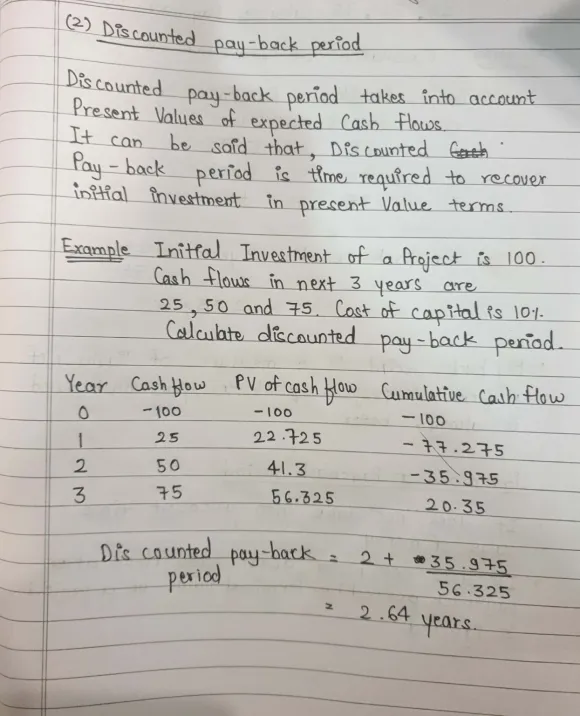 (2) Discounted pay-back period
Discounted pay-back period takes into account
Present Values of expected Cash flows.
It can be said that, Discounted Cash
Pay-back period is time required to recover
initial investment in present Value terms.
Example Initial Investment of a Project is 100.
Cash flows in next 3 years are
25, 50 and 75. Cost of capital is 10%.
Calculate discounted pay-back period.
Year Cash flow PV of cash flow Cumulative Cash flow
0 -100 -100 -100
1 25 22.725 -77.275
2 50 41.3 -35.975
3 75 56.325 20.35
Discounted pay-back = 2 + 35.975
period 56.325
= 2.64 years.